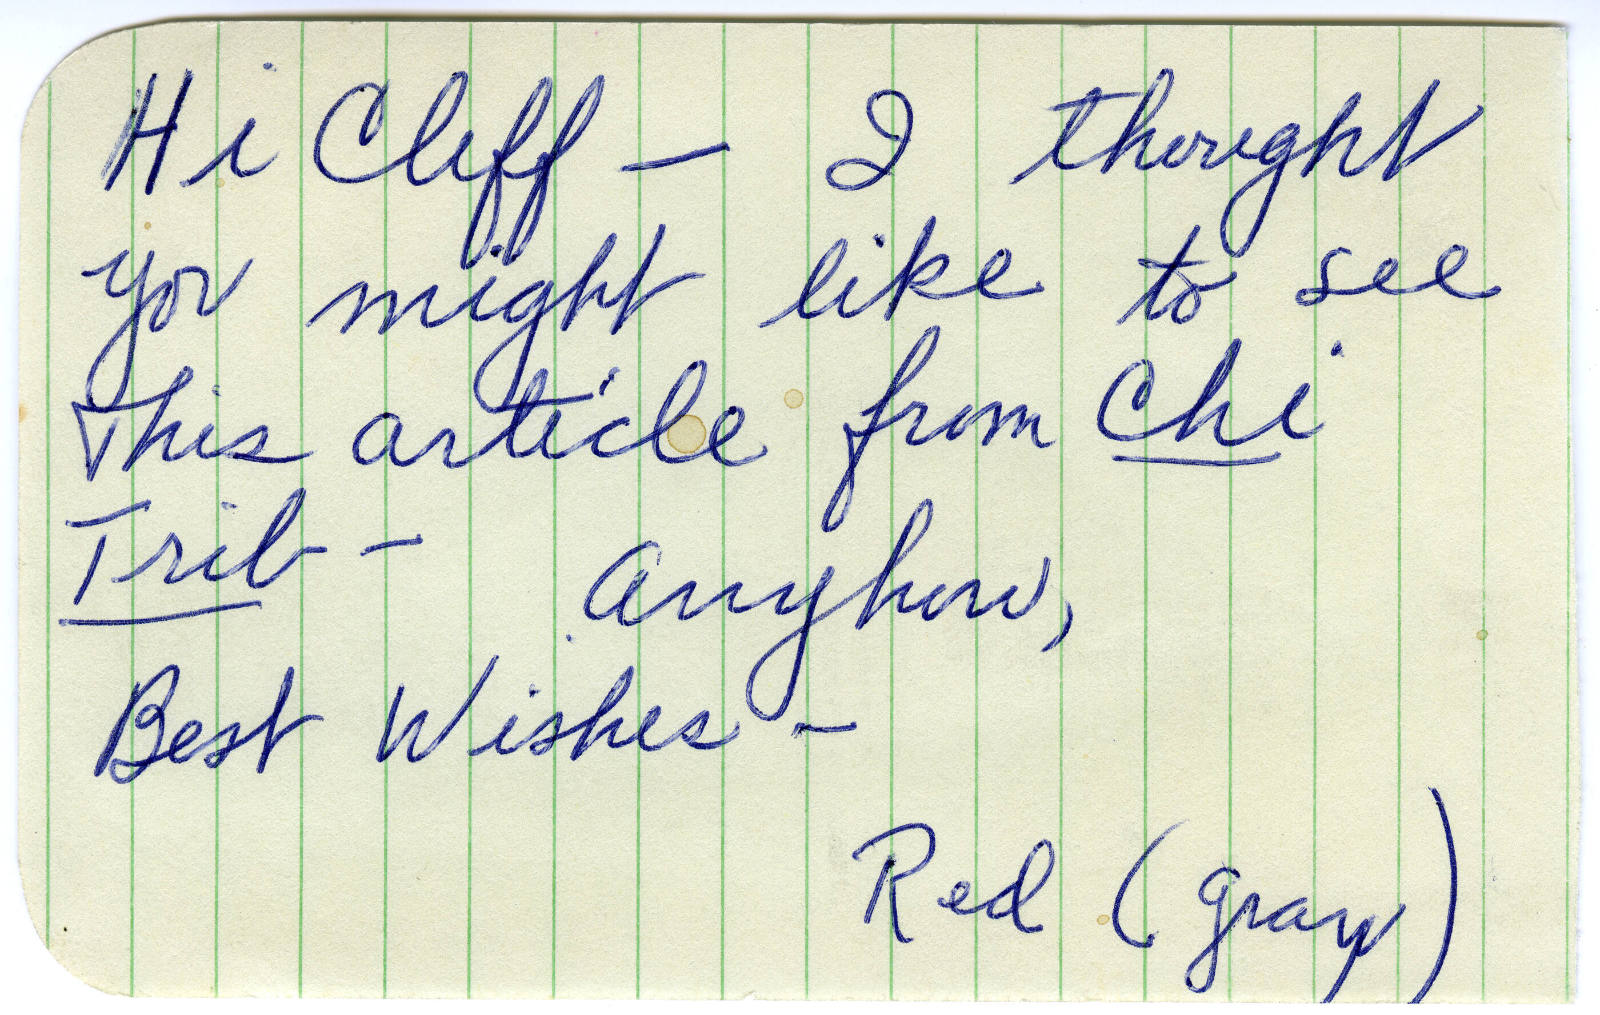 Hi Cliff — I thought
you might like to see
this article from Chi
Trib — Anyhow,
Best Wishes —
Red (gray)